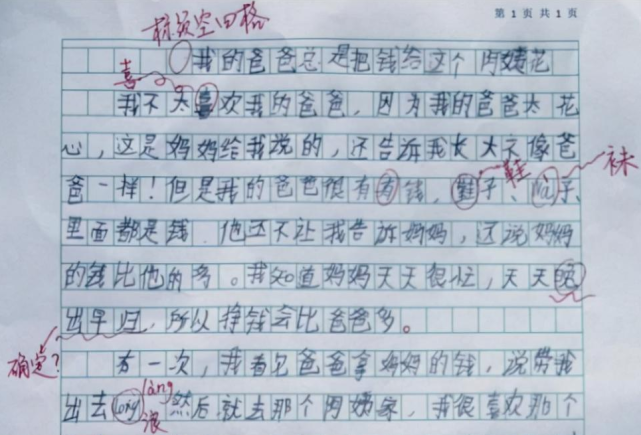 第 1 页 共 1 页
标须空四格
我的爸爸总是把钱给这个阿姨花
喜
我不太喜欢我的爸爸，因为我的爸爸太花
心，这是妈妈给我说的，还告诉我长大不像爸
鞋
袜
爸一样！但是我的爸爸很有有钱，鞋子、子、
里面都是钱，他还不让我告诉妈妈，还说妈妈
的钱比他的多。我知道妈妈天天很忙，天天晚
出早归，所以挣钱会比爸爸多。
确定？
有一次，我看见爸爸拿妈妈的钱，说带我
làng
出去long然后就去那个阿姨家，我很喜欢那个
浪